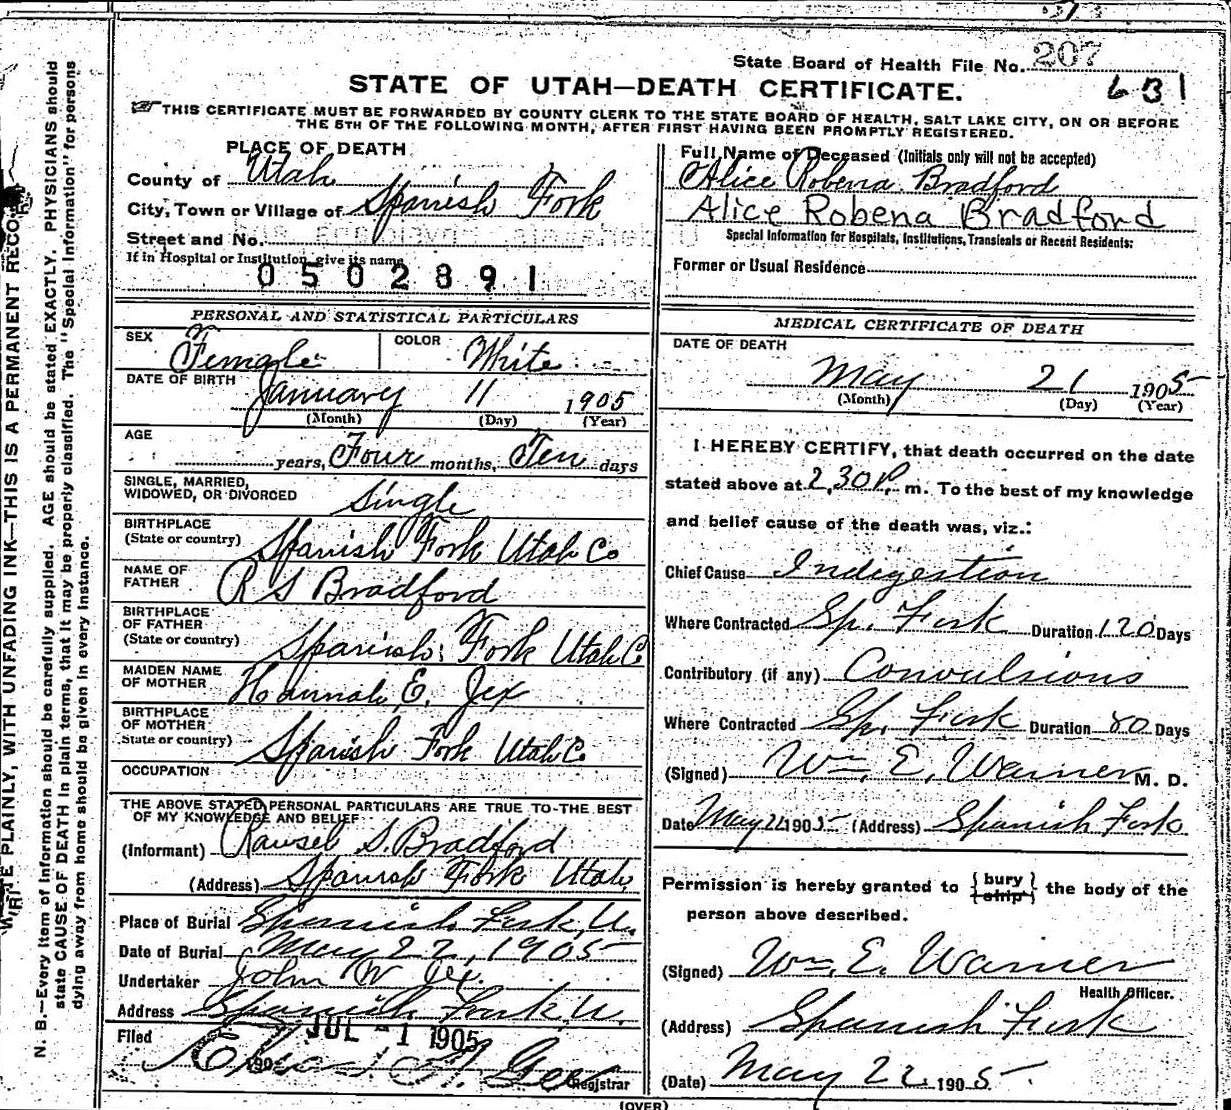 State Board of Health File No. 207
STATE OF UTAH—DEATH CERTIFICATE.
631
THIS CERTIFICATE MUST BE FORWARDED BY COUNTY CLERK TO THE STATE BOARD OF HEALTH, SALT LAKE CITY, ON OR BEFORE
THE 5TH OF THE FOLLOWING MONTH, AFTER FIRST HAVING BEEN PROMPTLY REGISTERED.
PLACE OF DEATH
County of Utah
City, Town or Village of Spanish Fork
Street and No.
If in Hospital or Institution, give its name
0502891
PERSONAL AND STATISTICAL PARTICULARS
SEX Female COLOR White
DATE OF BIRTH January 11 1905
(Month) (Day) (Year)
AGE
years, Four months, Ten days
SINGLE, MARRIED,
WIDOWED, OR DIVORCED Single
BIRTHPLACE
(State or country) Spanish Fork Utah Co
NAME OF
FATHER R S Bradford
BIRTHPLACE
OF FATHER
(State or country) Spanish Fork Utah Co
MAIDEN NAME
OF MOTHER Hannah E. Jex
BIRTHPLACE
OF MOTHER
State or country) Spanish Fork Utah Co
OCCUPATION
THE ABOVE STATED PERSONAL PARTICULARS ARE TRUE TO THE BEST
OF MY KNOWLEDGE AND BELIEF
(Informant) Rawsel S. Bradford
(Address) Spanish Fork Utah
Place of Burial Spanish Fork, U.
Date of Burial May 22, 1905
Undertaker John W Jex.
Address Spanish Fork U.
Filed JUL -1 1905
190
Registrar
Full Name of Deceased (Initials only will not be accepted)
Alice Robena Bradford
Alice Robena Bradford
Special Information for Hospitals, Institutions, Transients or Recent Residents:
Former or Usual Residence
MEDICAL CERTIFICATE OF DEATH
DATE OF DEATH
May 21 1905
(Month) (Day) (Year)
I HEREBY CERTIFY, that death occurred on the date
stated above at 2,30 P. m. To the best of my knowledge
and belief cause of the death was, viz.:
Chief Cause Indigestion
Where Contracted Sp. Fork Duration 120 Days
Contributory (if any) Convulsions
Where Contracted Sp. Fork Duration 80 Days
(Signed) Wm. E. Warner M. D.
Date May 1905 (Address) Spanish Fork
Permission is hereby granted to {bury ship} the body of the
person above described.
(Signed) Wm. E. Warner
Health Officer.
(Address) Spanish Fork
(Date) May 22 1905.
(OVER)
PLAINLY, WITH UNFADING INK—THIS IS A PERMANENT
N. B.—Every item of information should be carefully supplied. AGE should be stated EXACTLY. PHYSICIANS should
state CAUSE OF DEATH in plain terms, that it may be properly classified. The "Special Information" for persons
dying away from home should be given in every instance.